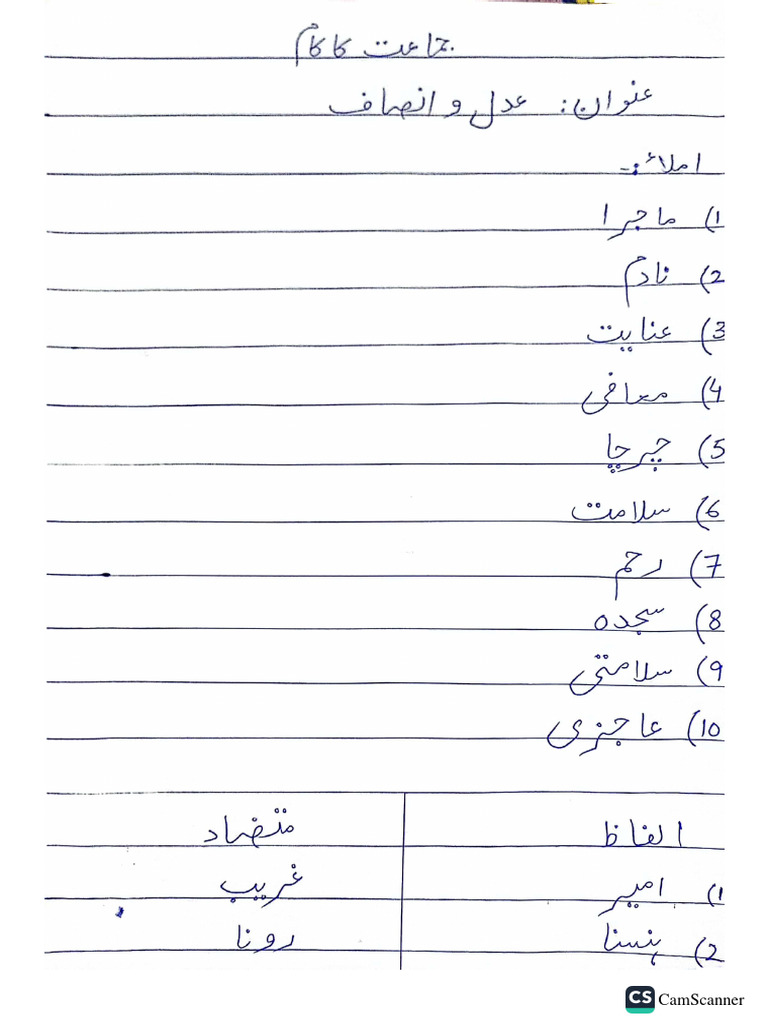 جماعت کا کام
عنوان: عدل و انصاف
املاء :-
1) ماجرا
2) نادم
3) عنایت
4) معافی
5) چرچا
6) سلامت
7) رحم
8) سجدہ
9) سلامتی
10) عاجزی
الفاظ متضاد
1) امیر غریب
2) ہنسنا رونا
CS CamScanner